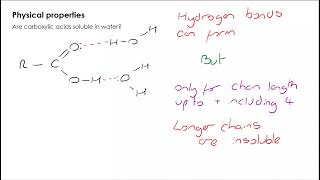 Physical properties
Are carboxylic acids soluble in water?
Hydrogen bonds
can form
But
only for chain length
up to + including 4
Longer chains
are insoluble
R - C
O
O - H
H - O
H
O
H
H